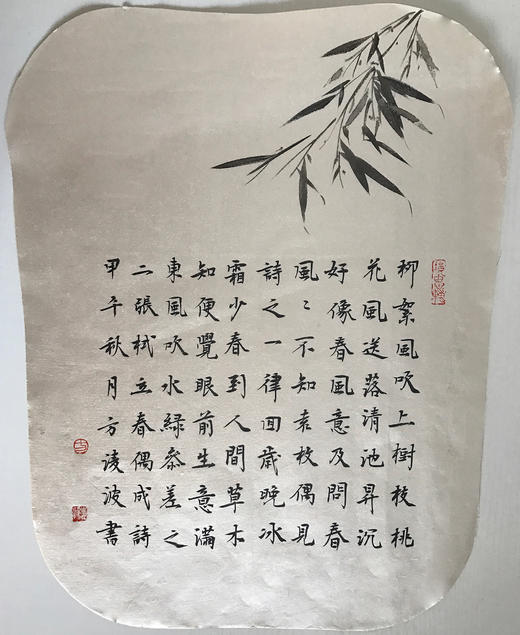 柳絮風吹上樹枝桃
花風送落清池昇沉
好像春風意及問春
風〻不知袁枚偶見
詩之一律回歲晚冰
霜少春到人間草木
知便覺眼前生意滿
東風吹水綠叅差之
二張栻立春偶成詩
甲午秋月方淩波書